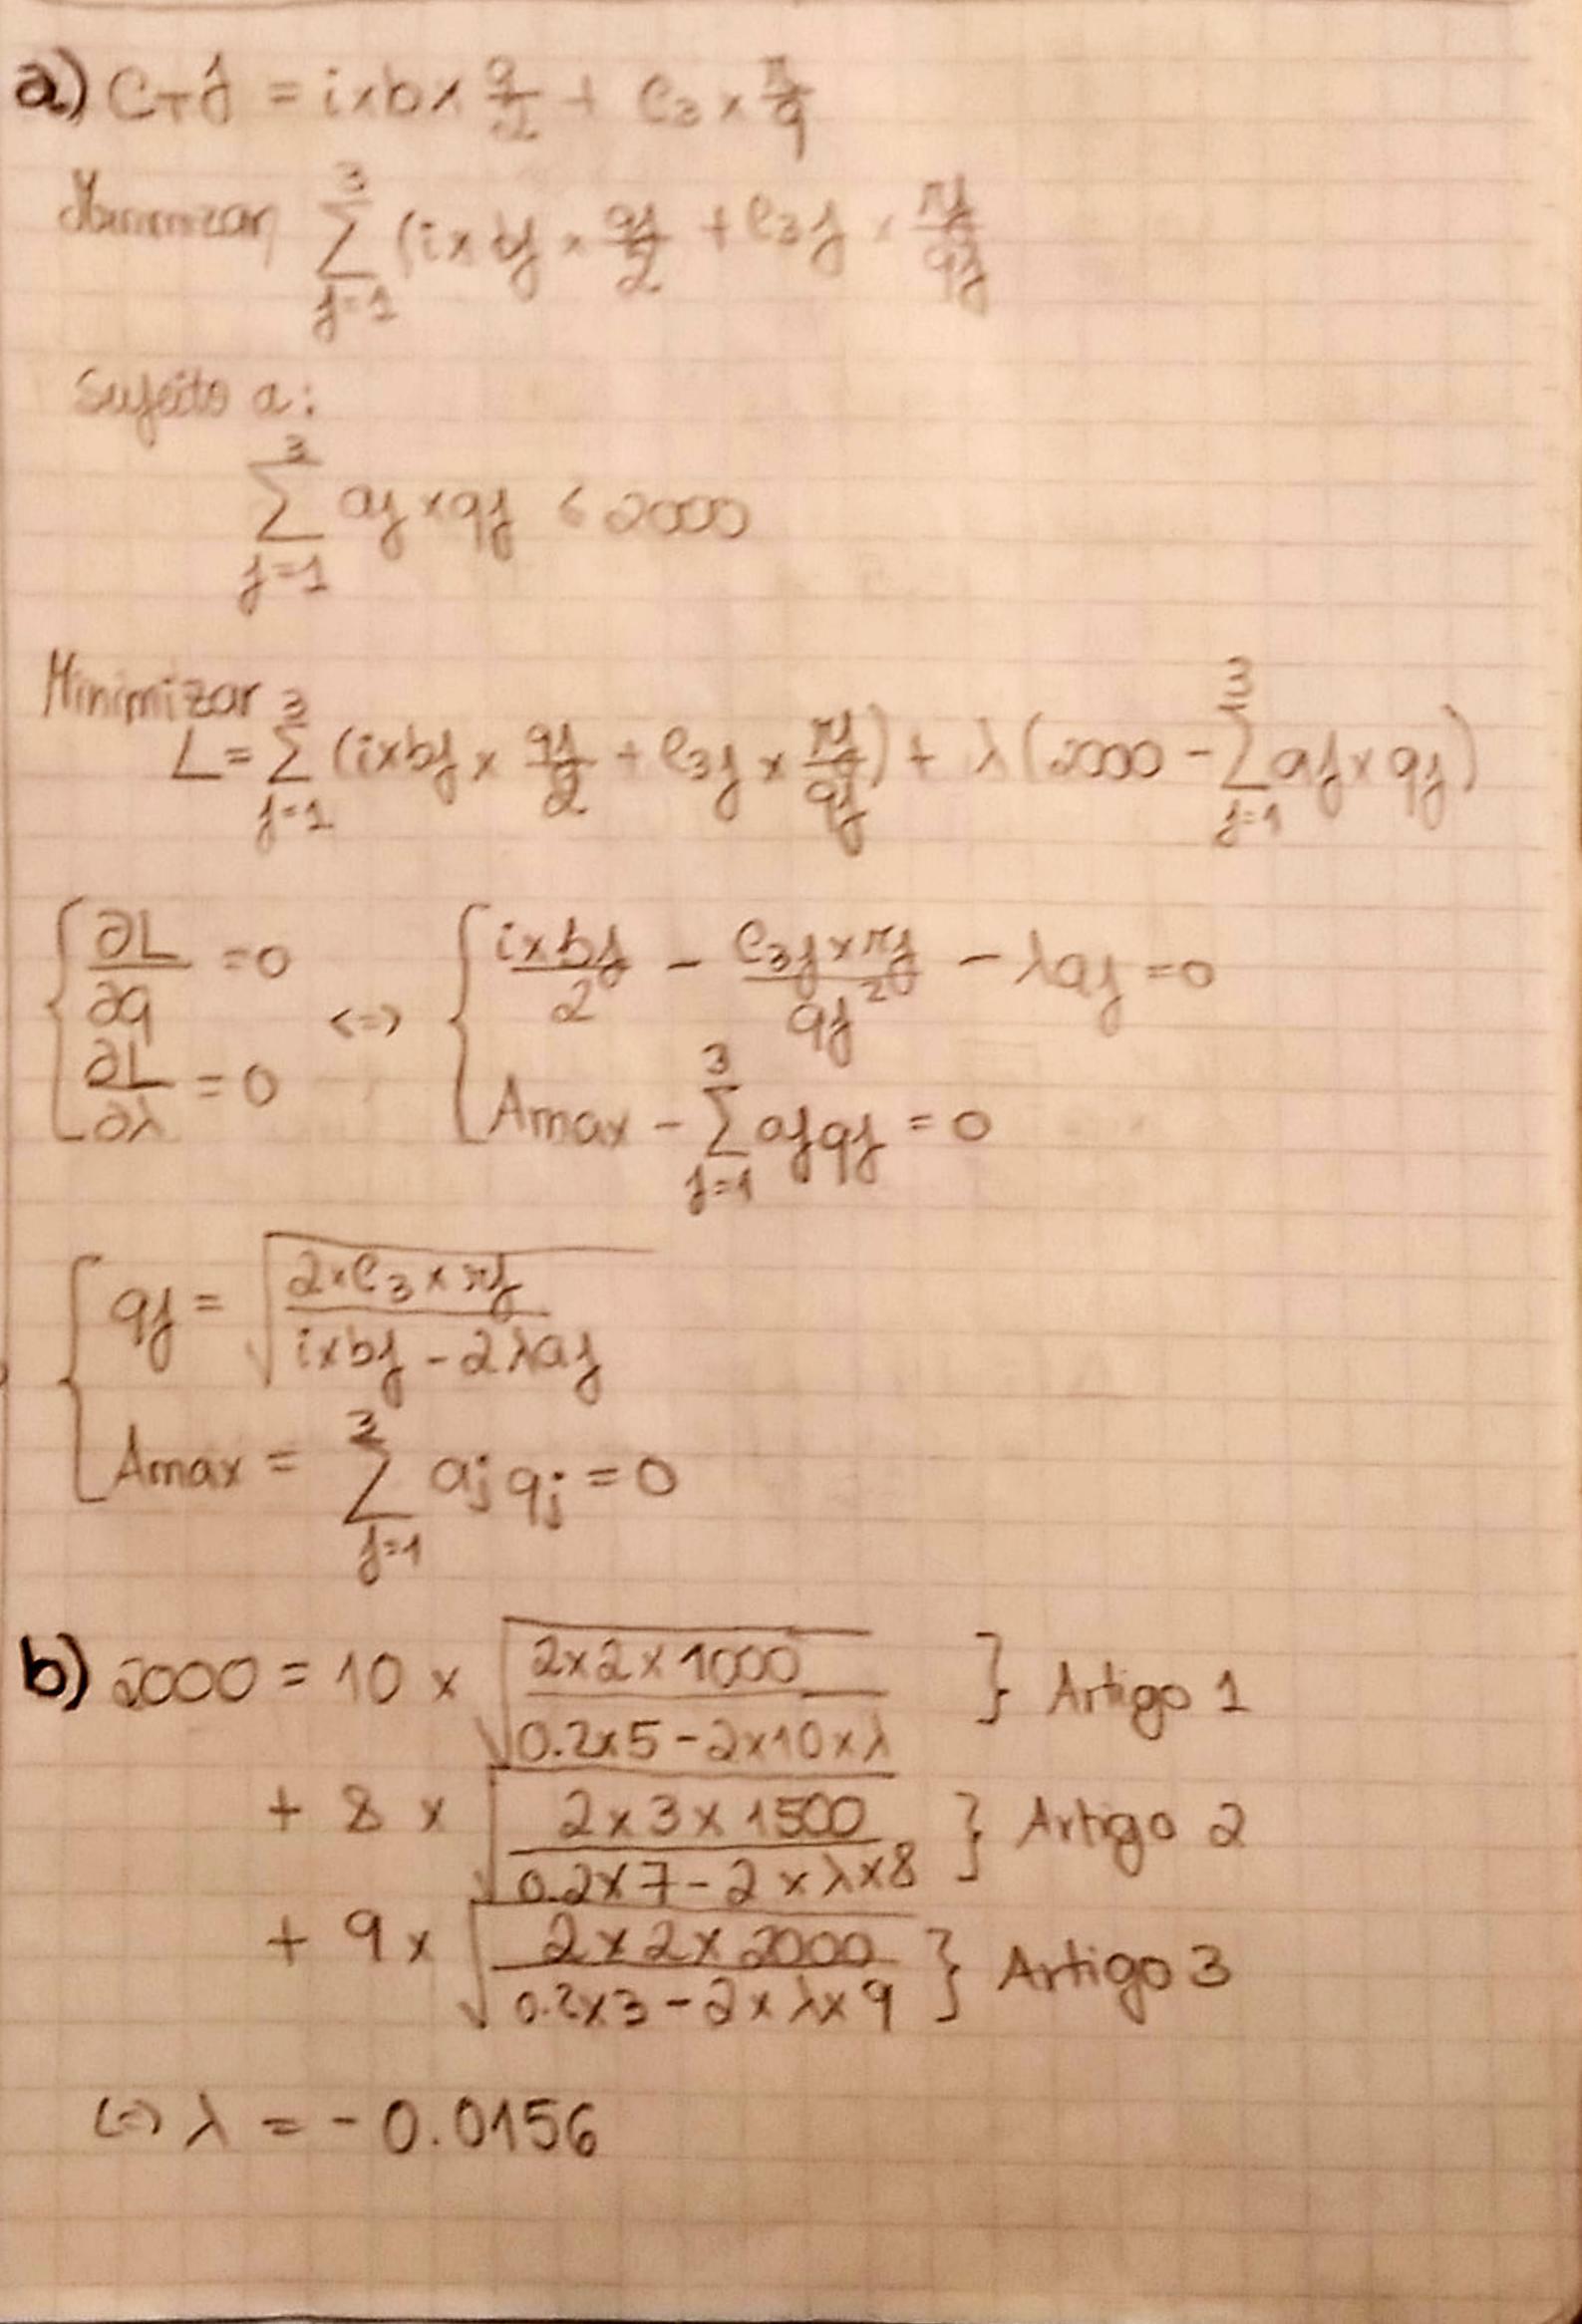 a) CTj = i×b×q/2 + C3×r/q
Minimizar ∑_{j=1}^{3} (i×bj×qj/2 + C3j×rj/qj
Sujeito a:
∑_{j=1}^{3} aj×qj ≤ 2000
Minimizar
L = ∑_{j=1}^{3} (i×bj×qj/2 + C3j×rj/qj) + λ(2000 - ∑_{j=1}^{3} aj×qj)
{ ∂L/∂q = 0 <=> { i×bj/2 - C3j×rj/qj² - λaj = 0
∂L/∂λ = 0 Amax - ∑_{j=1}^{3} ajqj = 0
{ qj = √(2×C3×rj / i×bj - 2λaj)
Amax = ∑_{j=1}^{3} aj qj = 0
b) 2000 = 10 × √(2×2×1000 / 0.2×5 - 2×10×λ) } Artigo 1
+ 8 × √(2×3×1500 / 0.2×7 - 2×λ×8) } Artigo 2
+ 9 × √(2×2×2000 / 0.2×3 - 2×λ×9) } Artigo 3
<=> λ = -0.0156